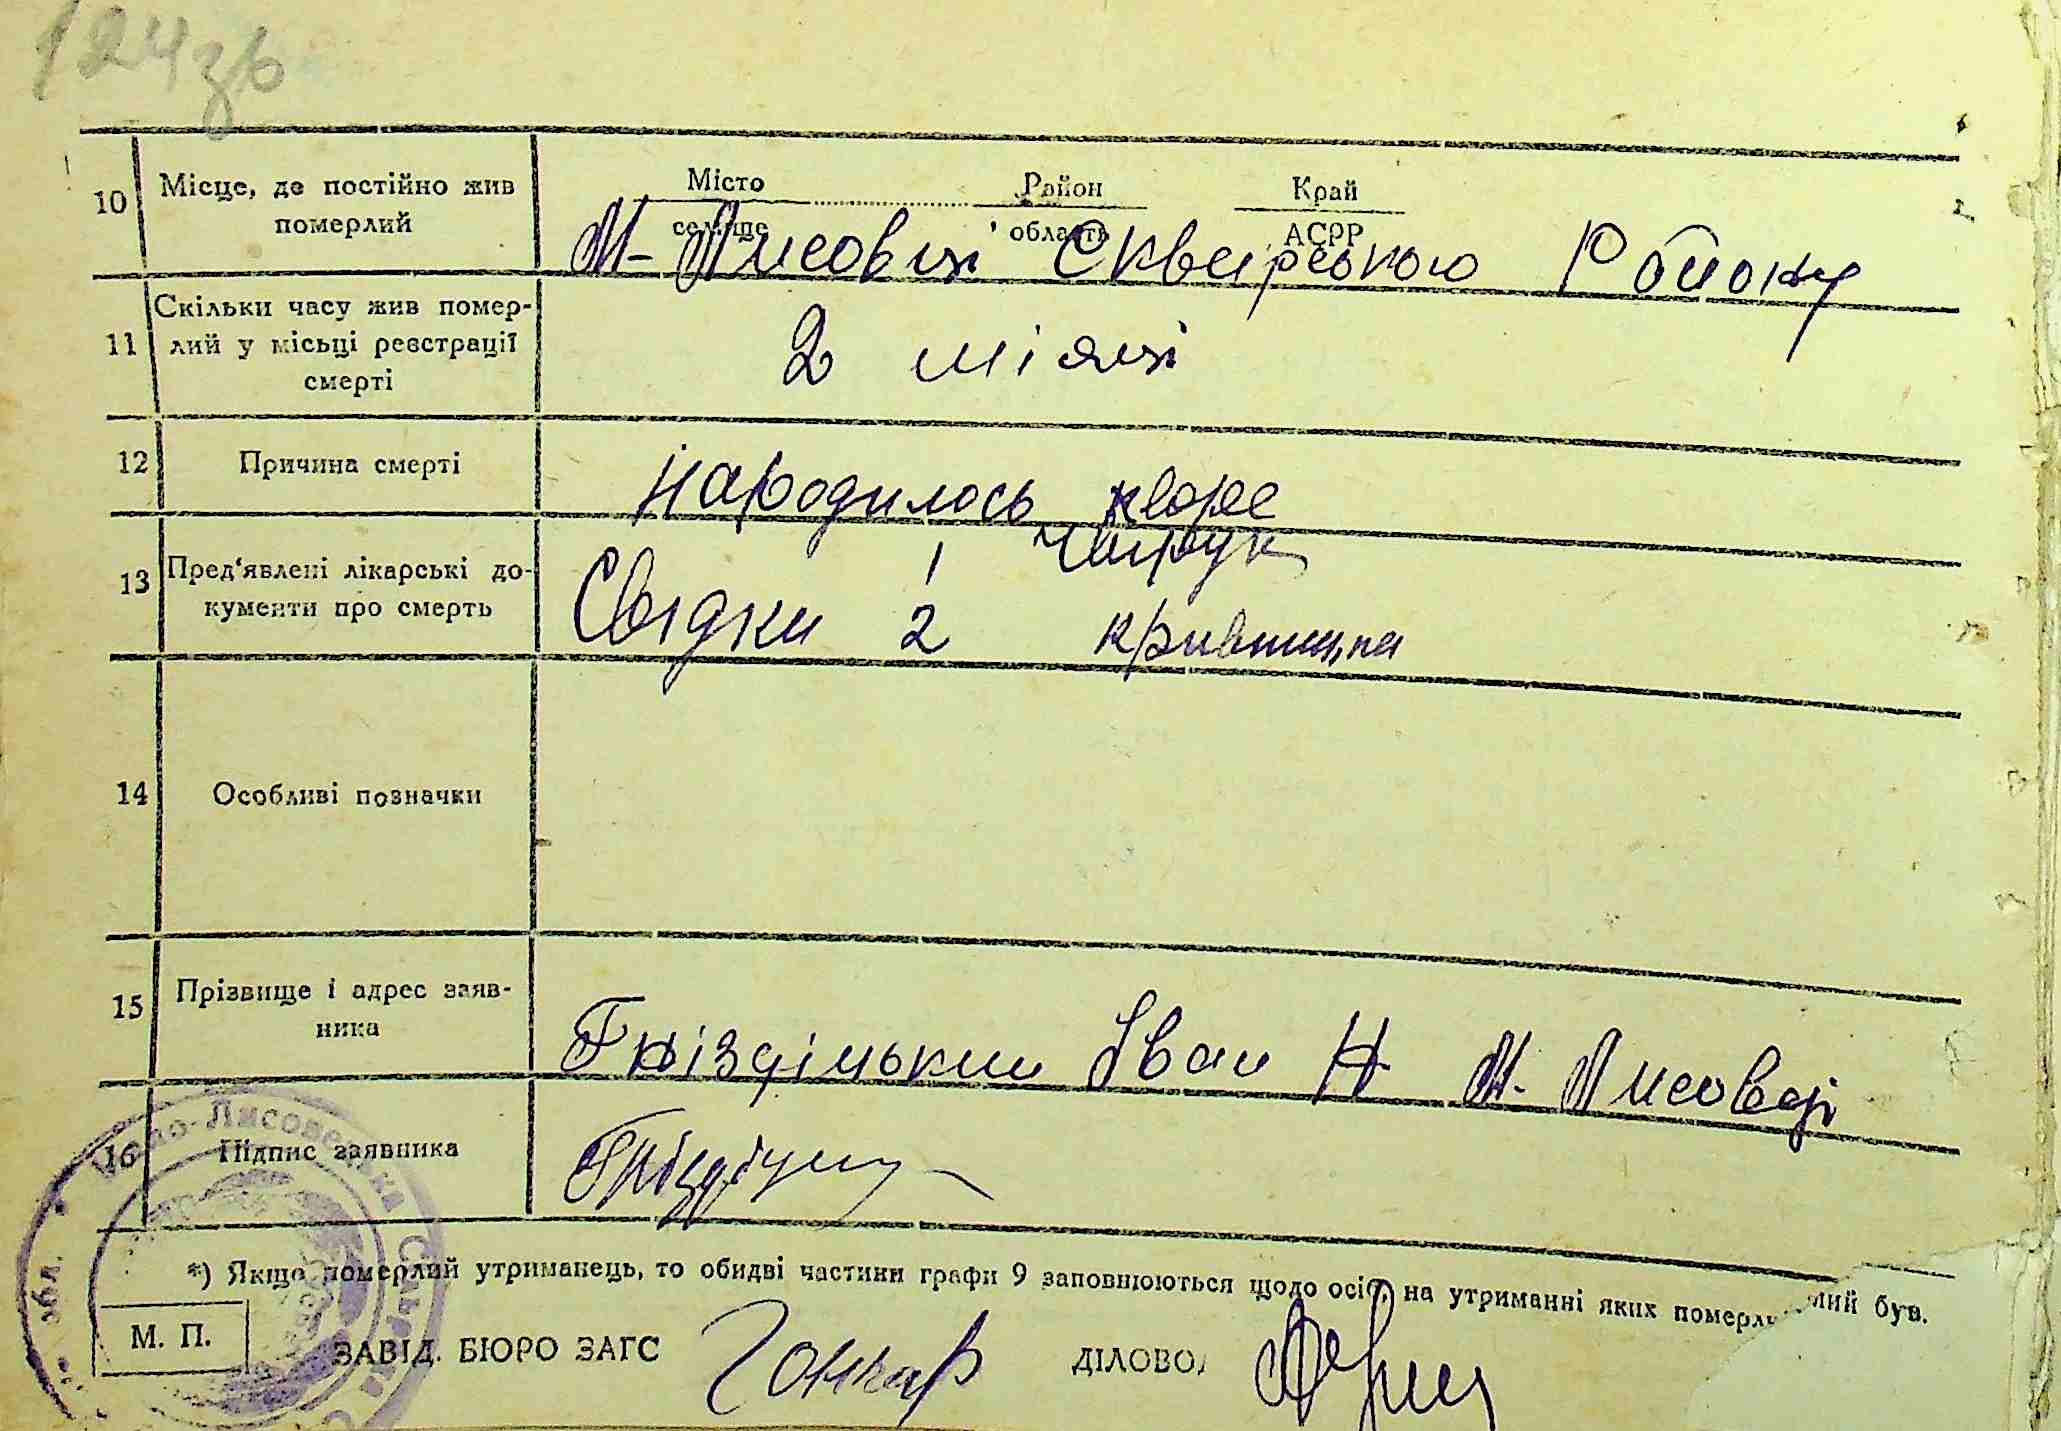 124зв
10 Місце, де постійно жив померлий
Місто Район Край
селище область АСРР
М-Лисовці Сквирського Району
11 Скільки часу жив помер-
лий у місьці реєстрації
смерті
2 місяці
12 Причина смерті
Народилось хворе
13 Пред'явлені лікарські до-
кументи про смерть
1
Свідки 2
14 Особливі позначки
15 Прізвище і адрес заяв-
ника
Гніздіцький Іван Н М. Лисовці
16 Підпис заявника
*) Якщо померлий утриманець, то обидві частини графи 9 заповнюються щодо осіб, на утриманні яких померлий був.
М. П.
ЗАВІД. БЮРО ЗАГС Гончар ДІЛОВО